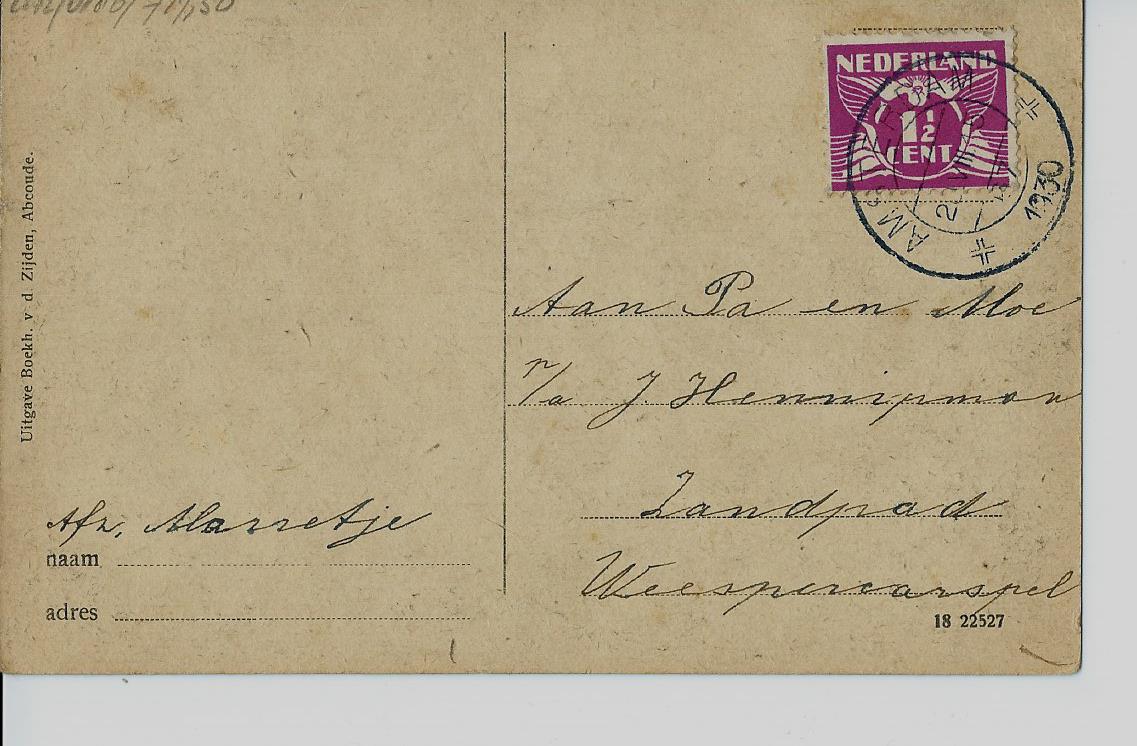 Uitgave Boekh. v d Zijden, Abcoude.
NEDERLAND
1½
CENT
AMSTERDAM
1930
Aan Pa en Moe
p/a J. Hennipman
Zandpad
Weespercarspel
Afz. Marretje
naam
adres
18 22527